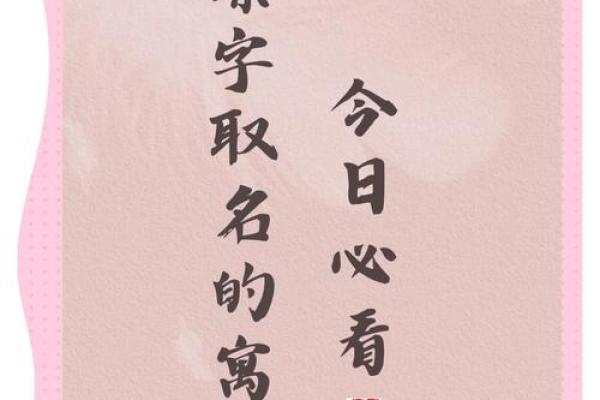 今日必看
字取名的寓